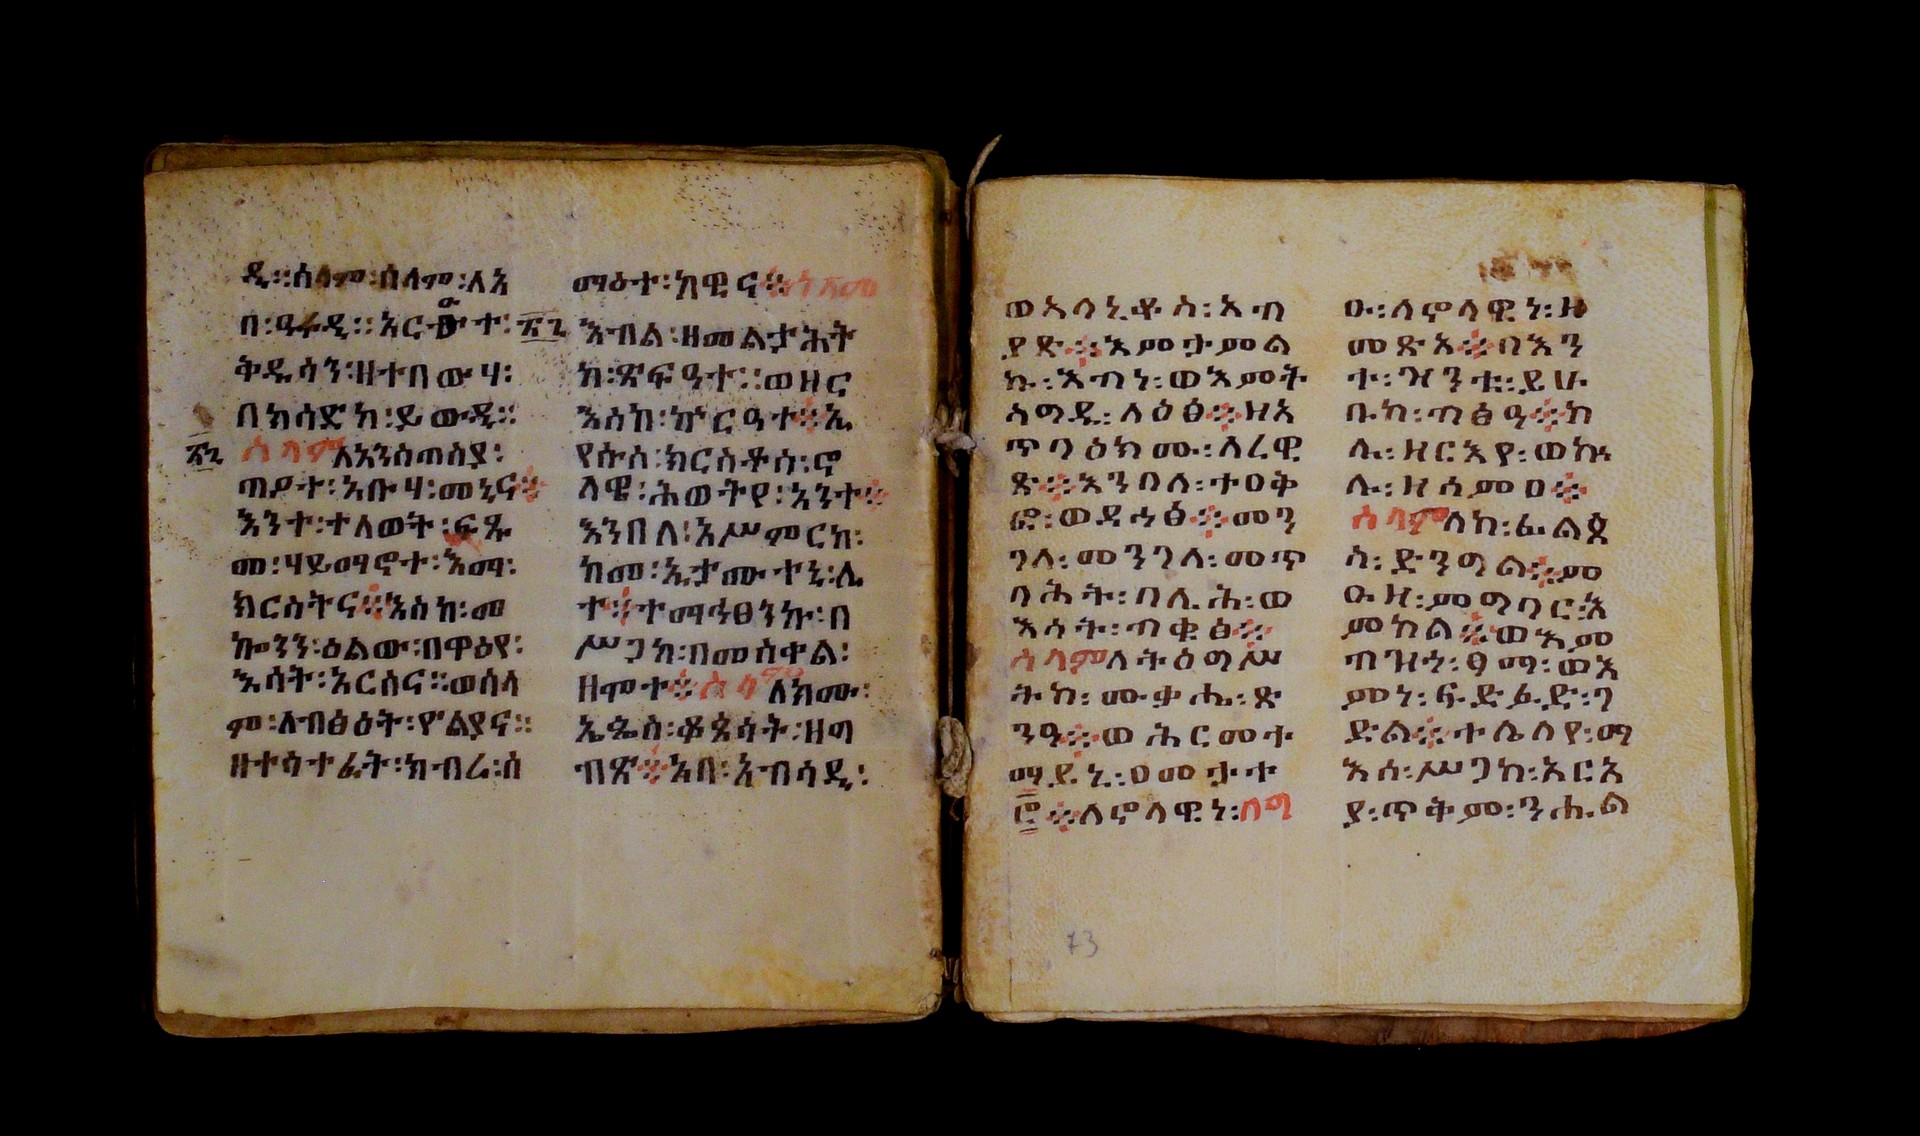 ዲ።ሰላም፡ሰላም፡ለአ
በ፡ዓዋዲ።አርዌተ፡
ቅዱሳን፡ዘተበውሃ፡
በክሳድከ፡ይውዲ።
ሰላም ለአንስጠስያ፡
ጣዖተ፡አቡሃ፡መኒና።
እንተ፡ተለወት፡ፍጹ
መ፡ሃይማኖተ፡እማ፡
ክርስትና።እስከ፡መ
ኰንን፡ዕልው፡በዋዕየ፡
እሳት፡አርሰና።ወሰላ
ም፡ለብፅዕት፡ዮልያና።
ዘተሳተፈት፡ክብረ፡ሰ
ማዕተ፡ከዊና።
እብል፡ዘመልታሕት
ከ፡ጽፍዓተ።ወዘር
እስከ፡ኵርዓተ።ኢ
የሱስ፡ክርስቶስ፡ኖ
ላዊ፡ሕወትየ፡አንተ።
እንበለ፡አሥምርከ፡
ከመ፡ኢታሙተኒ፡ሌ
ተ።ተማኅፀንኩ፡በ
ሥጋከ፡በመስቀል፡
ዘሞተ።ሰላም ለክሙ፡
ኤጲስ፡ቆጶሳት፡ዘግ
ብጽ።አበ፡አብሳዲ፡
ወአላኒቆስ፡አብ
ያጽ።እምታምል
ኩ፡እብነ፡ወእምት
ስግዱ፡ለዕፅ።ዘአ
ጥባዕክሙ፡ለረዊ
ጽ።እንበለ፡ተዐቅ
ፎ፡ወዳኅፅ።መን
ገለ፡መንገለ፡መጥ
ባሕት፡በሊሕ፡ወ
እሳት፡ጣቁፅ።
ሰላም ለትዕግሥ
ትከ፡ሙቃሔ፡ጽ
ንዓ።ወሕርመተ
ማይ፡ዐመታተ
፳።ለኖላዊነ፡በግ
ዑ፡ለኖላዊነ፡ዘ
መጽአ።በእን
ተ፡ዝንቱ፡ይሁ
ቡከ፡ጣፅዓ።ከ
ሉ፡ዘርእየ፡ወኩ
ሉ፡ዘሰምዐ።
ሰላም ለከ፡ፊልጶ
ስ፡ድንግል።ም
ዑዘ፡ምግባር፡አ
ምከል።ወእም
ጣዝኅ፡ፄማ፡ወእ
ምነ፡ፍድፉድ፡ገ
ድል።ተሴሰየ፡ማ
እሰ፡ሥጋከ፡አርአ
ያ፡ጥቅም፡ንሕል
73